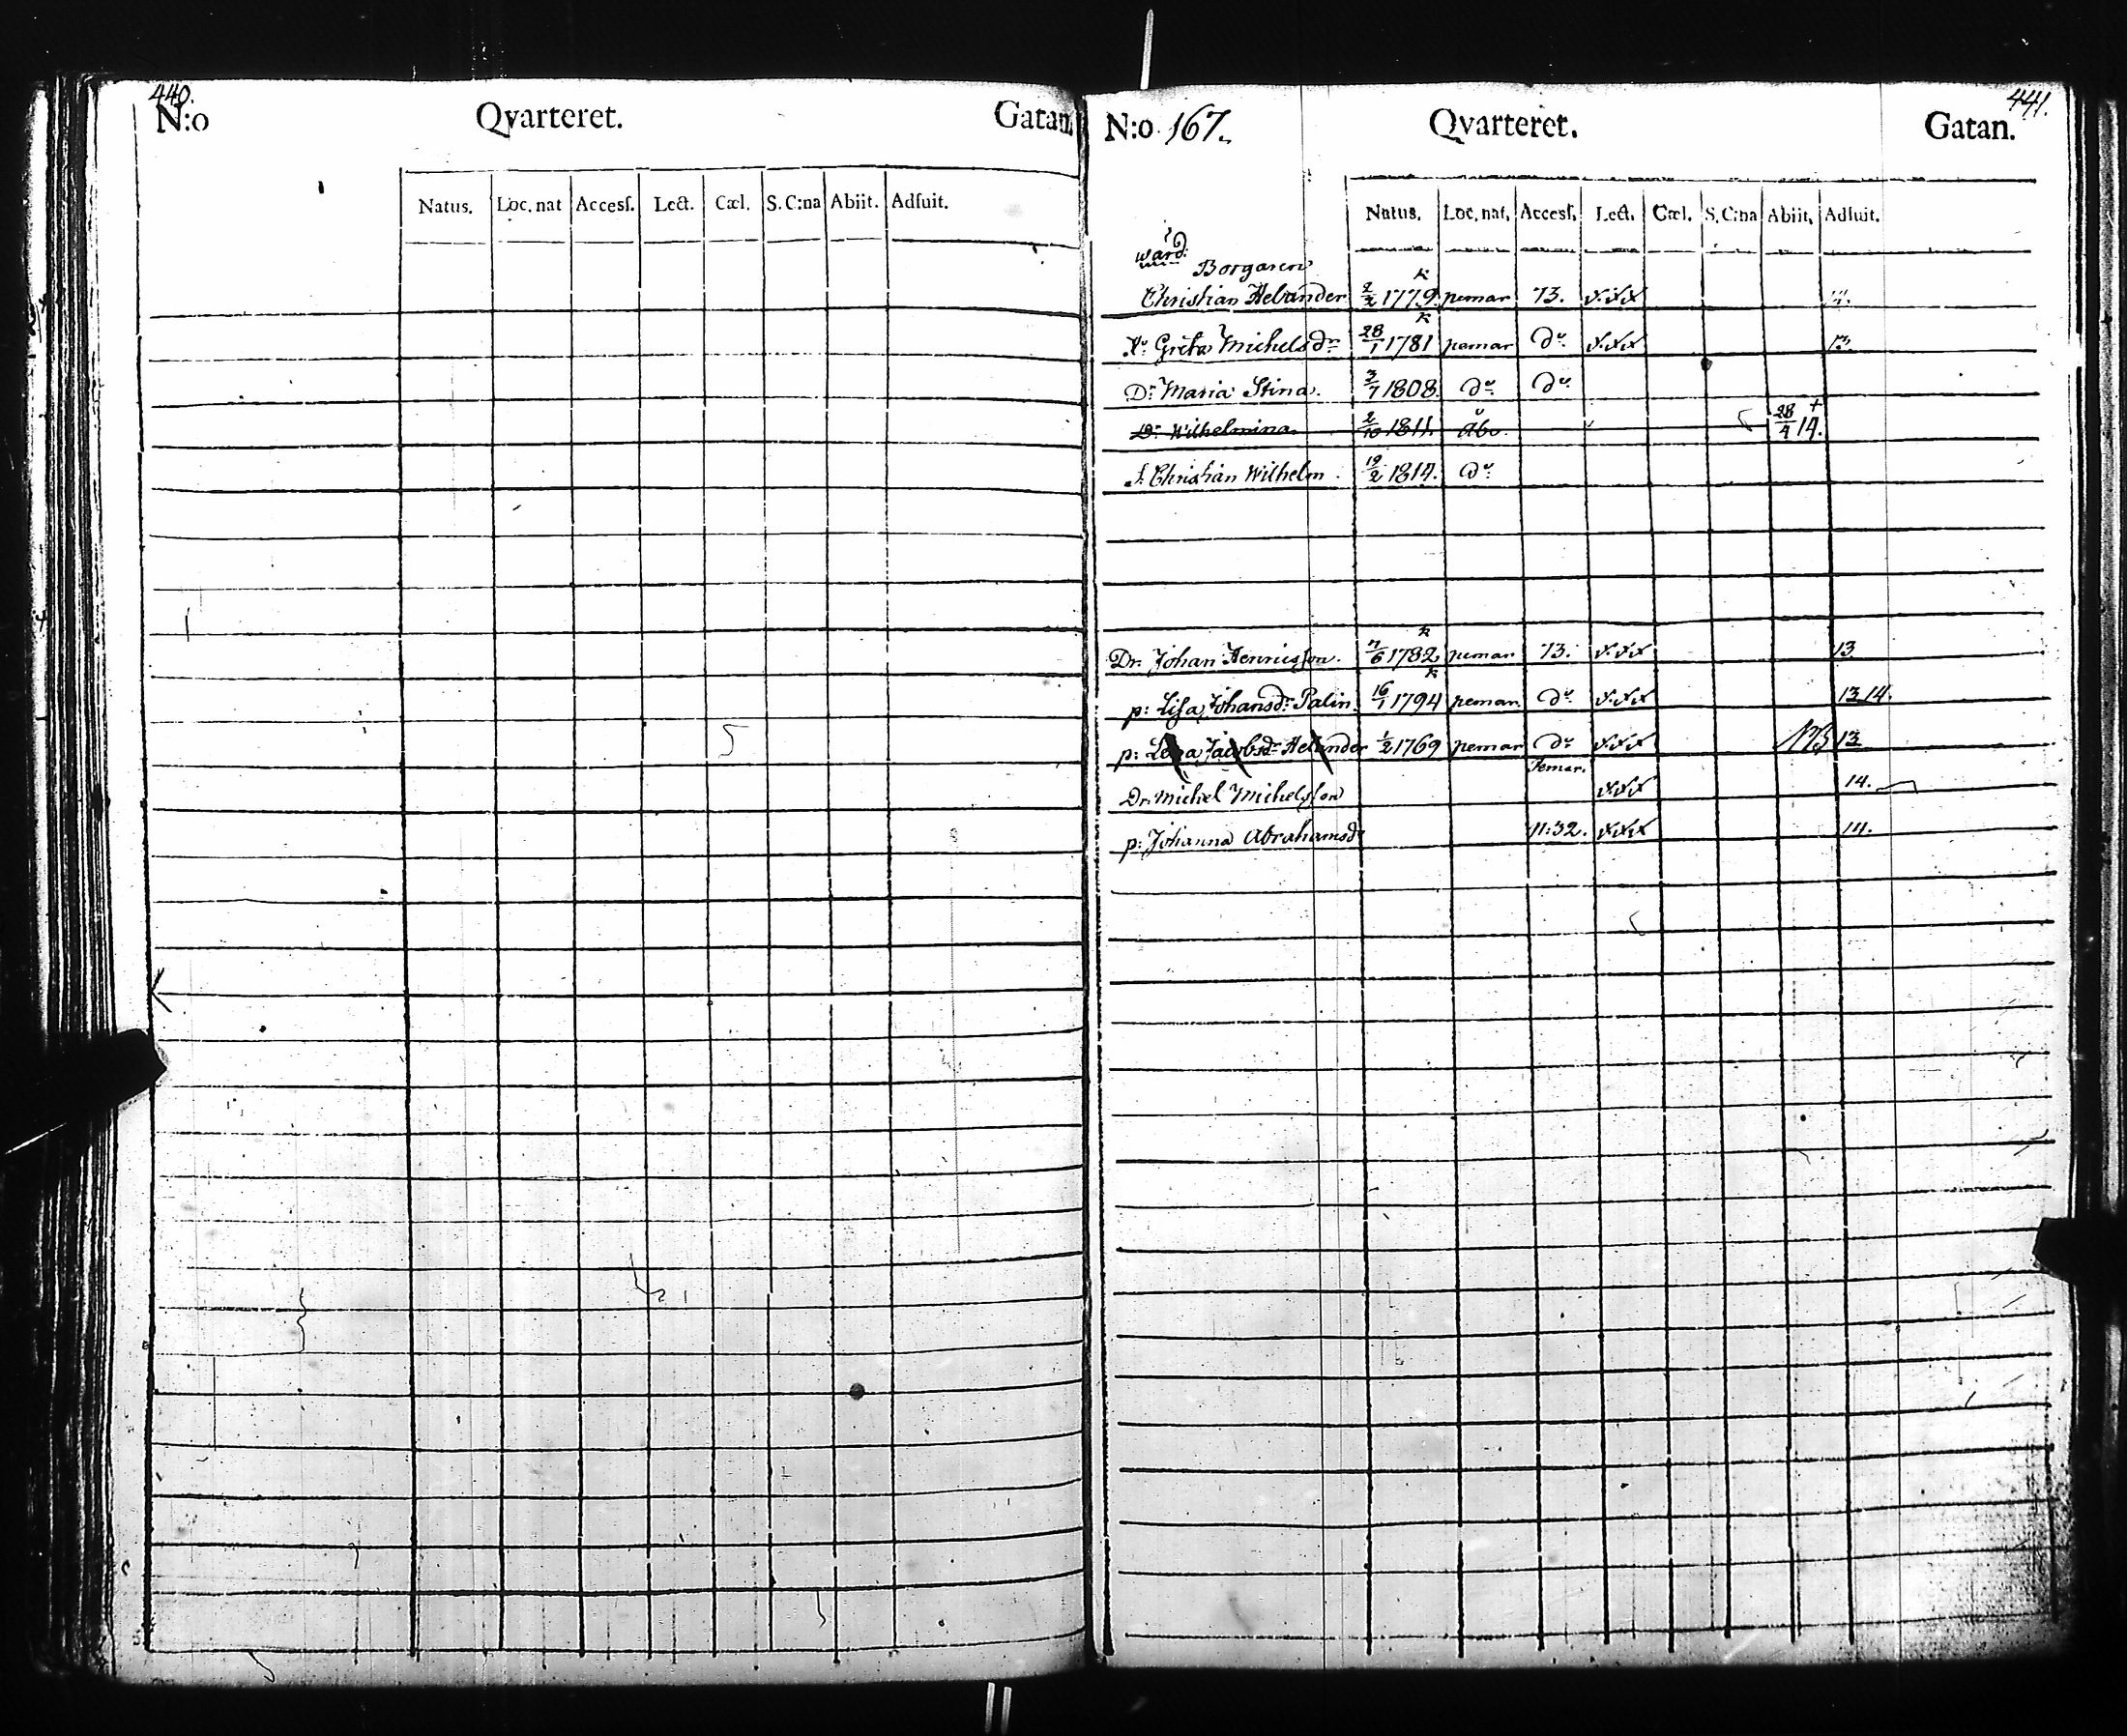 440.
N:o Qvarteret. Gatan.
Natus. Loc. nat Accesſ. Lect. Cæl. S. C:na Abiit. Adſuit.
441.
N:o 167. Qvarteret. Gatan.
Natus. Loc. nat. Accesſ. Lect. Cæl. S. C:na Abiit. Adſuit.
wärd:
Borgaren
Christian Helander 2/2 1779. k pemar 13. xxx 14.
H:u Greta Michelsd:r 28/1 1781 k pemar d:o xxx 13.
D:r Maria Stina. 3/7 1808. d:o d:o
D:r Wilhelmina 2/10 1811. åbo. 28/4 14. +
S. Christian Wilhelm. 19/2 1814. d:o
Dr. Johan Henricsſon. 7/6 1782 k pemar 13. xxx 13
p: Liſa Johansd:r Palin. 16/1 1794 k pemar d:o xxx 13.14.
p: Lena Jacobsd:r Helander 1/2 1769 pemar d:o xxx NB 13
Dr. Michel Michelsſon Pemar. xxx 14.
p: Johanna Abrahamsd:r 11:32. xxx 14.